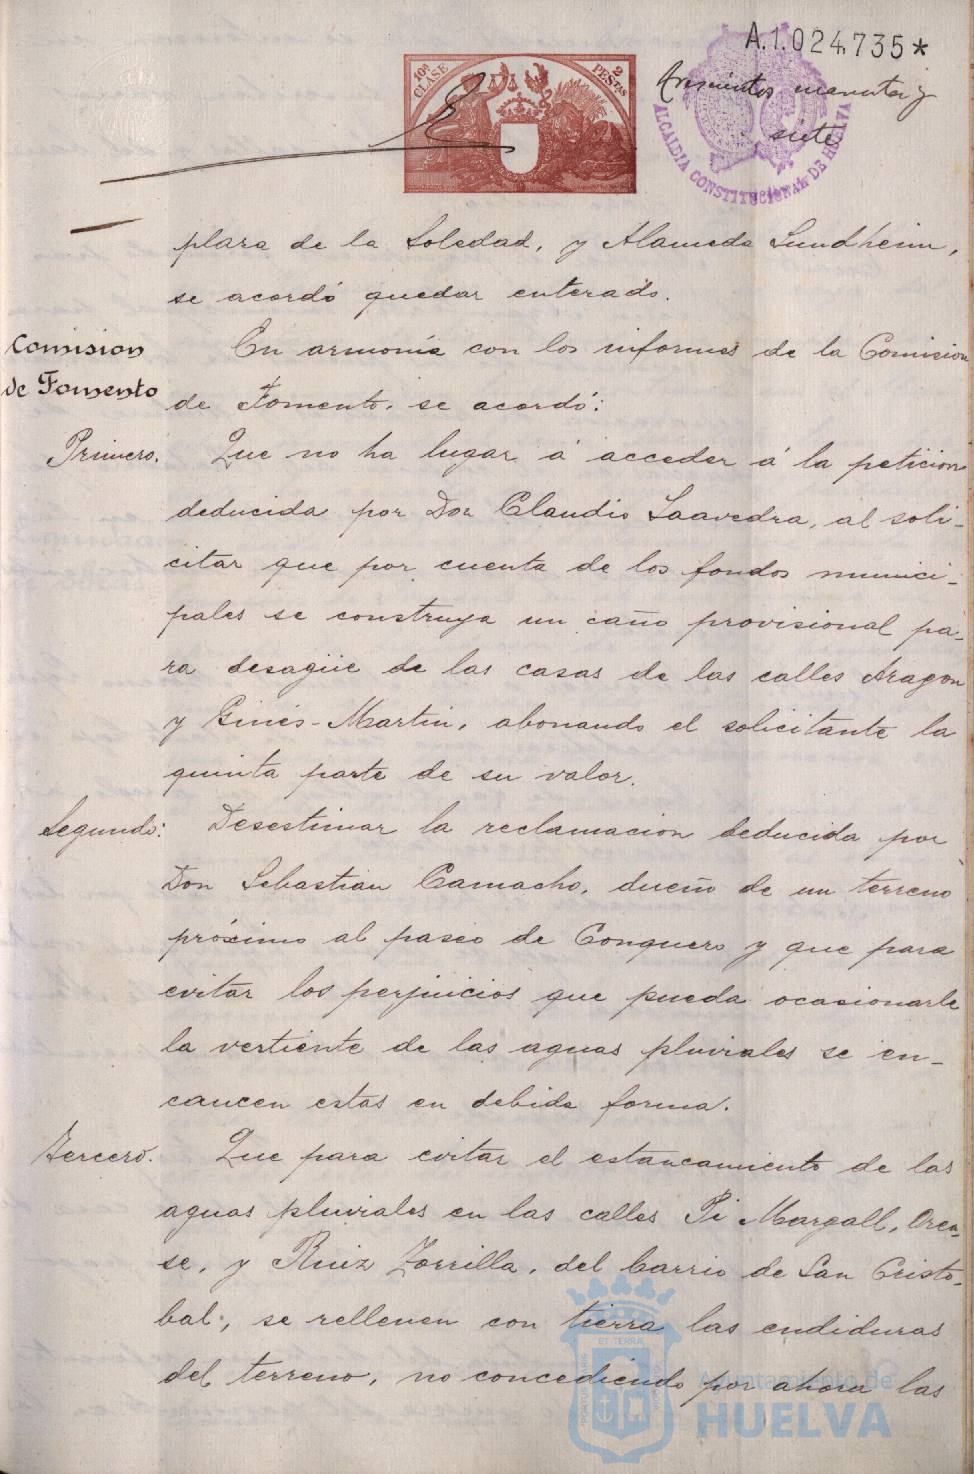 A.1.024,735*
10ª CLASE
2 PESTAS
Trescientos cuarenta y
siete
ALCALDIA CONSTITUCIONAL DE HUELVA
plaza de la Soledad, y Alameda Sundheim,
se acordó quedar enterado.
Comision
de Fomento
En armonía con los informes de la Comision
de Fomento, se acordó:
Primero.
Que no ha lugar á acceder á la peticion
deducida por Don Claudio Saavedra, al soli-
citar que por cuenta de los fondos munici-
pales se construya un caño provisional pa-
ra desagüe de las casas de las calles Aragon
y Ginés-Martin, abonando el solicitante la
quinta parte de su valor.
Segundo:
Desestimar la reclamacion deducida por
Don Sebastian Camacho, dueño de un terreno
próximo al paseo de Conquero y que para
evitar los perjuicios que pueda ocasionarle
la vertiente de las aguas pluviales se en-
caucen estas en debida forma.
Tercero.
Que para evitar el estancamiento de las
aguas pluviales en las calles Pi Margall, Oren-
se, y Ruiz Zorrilla, del barrio de San Cristo-
bal, se rellenen con tierra las endiduras
del terreno, no concediendo por ahora las
Ayuntamiento de
HUELVA